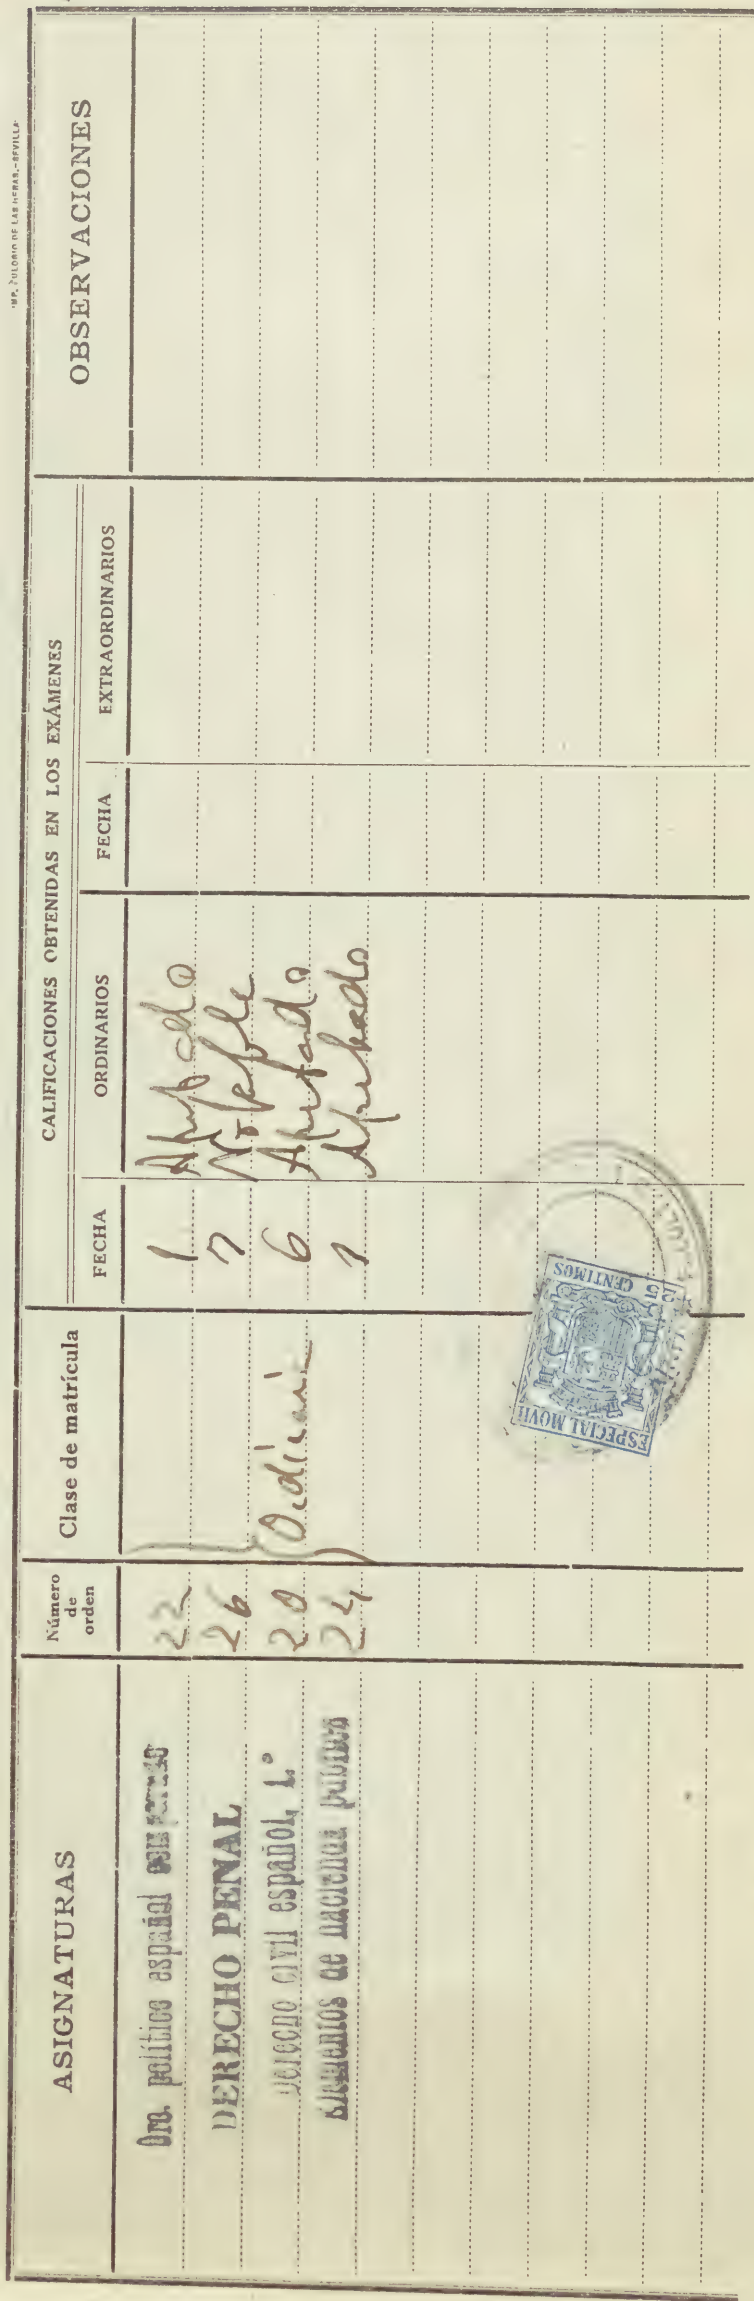 IMP. EULOGIO DE LAS HERAS.-SEVILLA
ASIGNATURAS
Número de orden
Clase de matrícula
CALIFICACIONES OBTENIDAS EN LOS EXÁMENES
FECHA
ORDINARIOS
FECHA
EXTRAORDINARIOS
OBSERVACIONES
Dro. político español comparado 22 1 Aprobado
DERECHO PENAL 26 7 Notable
Derecho civil español, 1.º 20 Ordinaria 6 Aprobado
Elementos de hacienda pública 24 1 Aprobado
ESPECIAL MOVIL
CENTIMOS